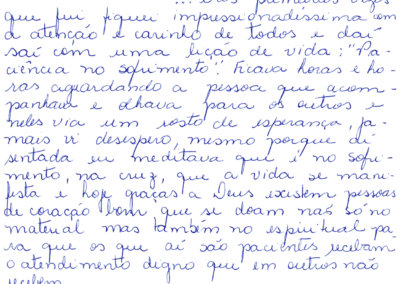 ... primeiras vezes
que fui fiquei impressionadissima com
a atenção e carinho de todos e daí
saí com uma lição de vida: "Pa-
ciência no sofrimento". Ficava horas e ho-
ras aguardando a pessoa que acom-
panhava e olhava para os outros e
neles via um rosto de esperança, ja-
mais vi desespero, mesmo porque ali
sentada eu meditava que é no sofri-
mento, na cruz, que a vida se mani-
festa e hoje graças a Deus existem pessoas
de coração bom, que se doam não só no
material mas também no espiritual pa-
ra que os que aí são pacientes recebam
o atendimento digno que em outros não
recebem